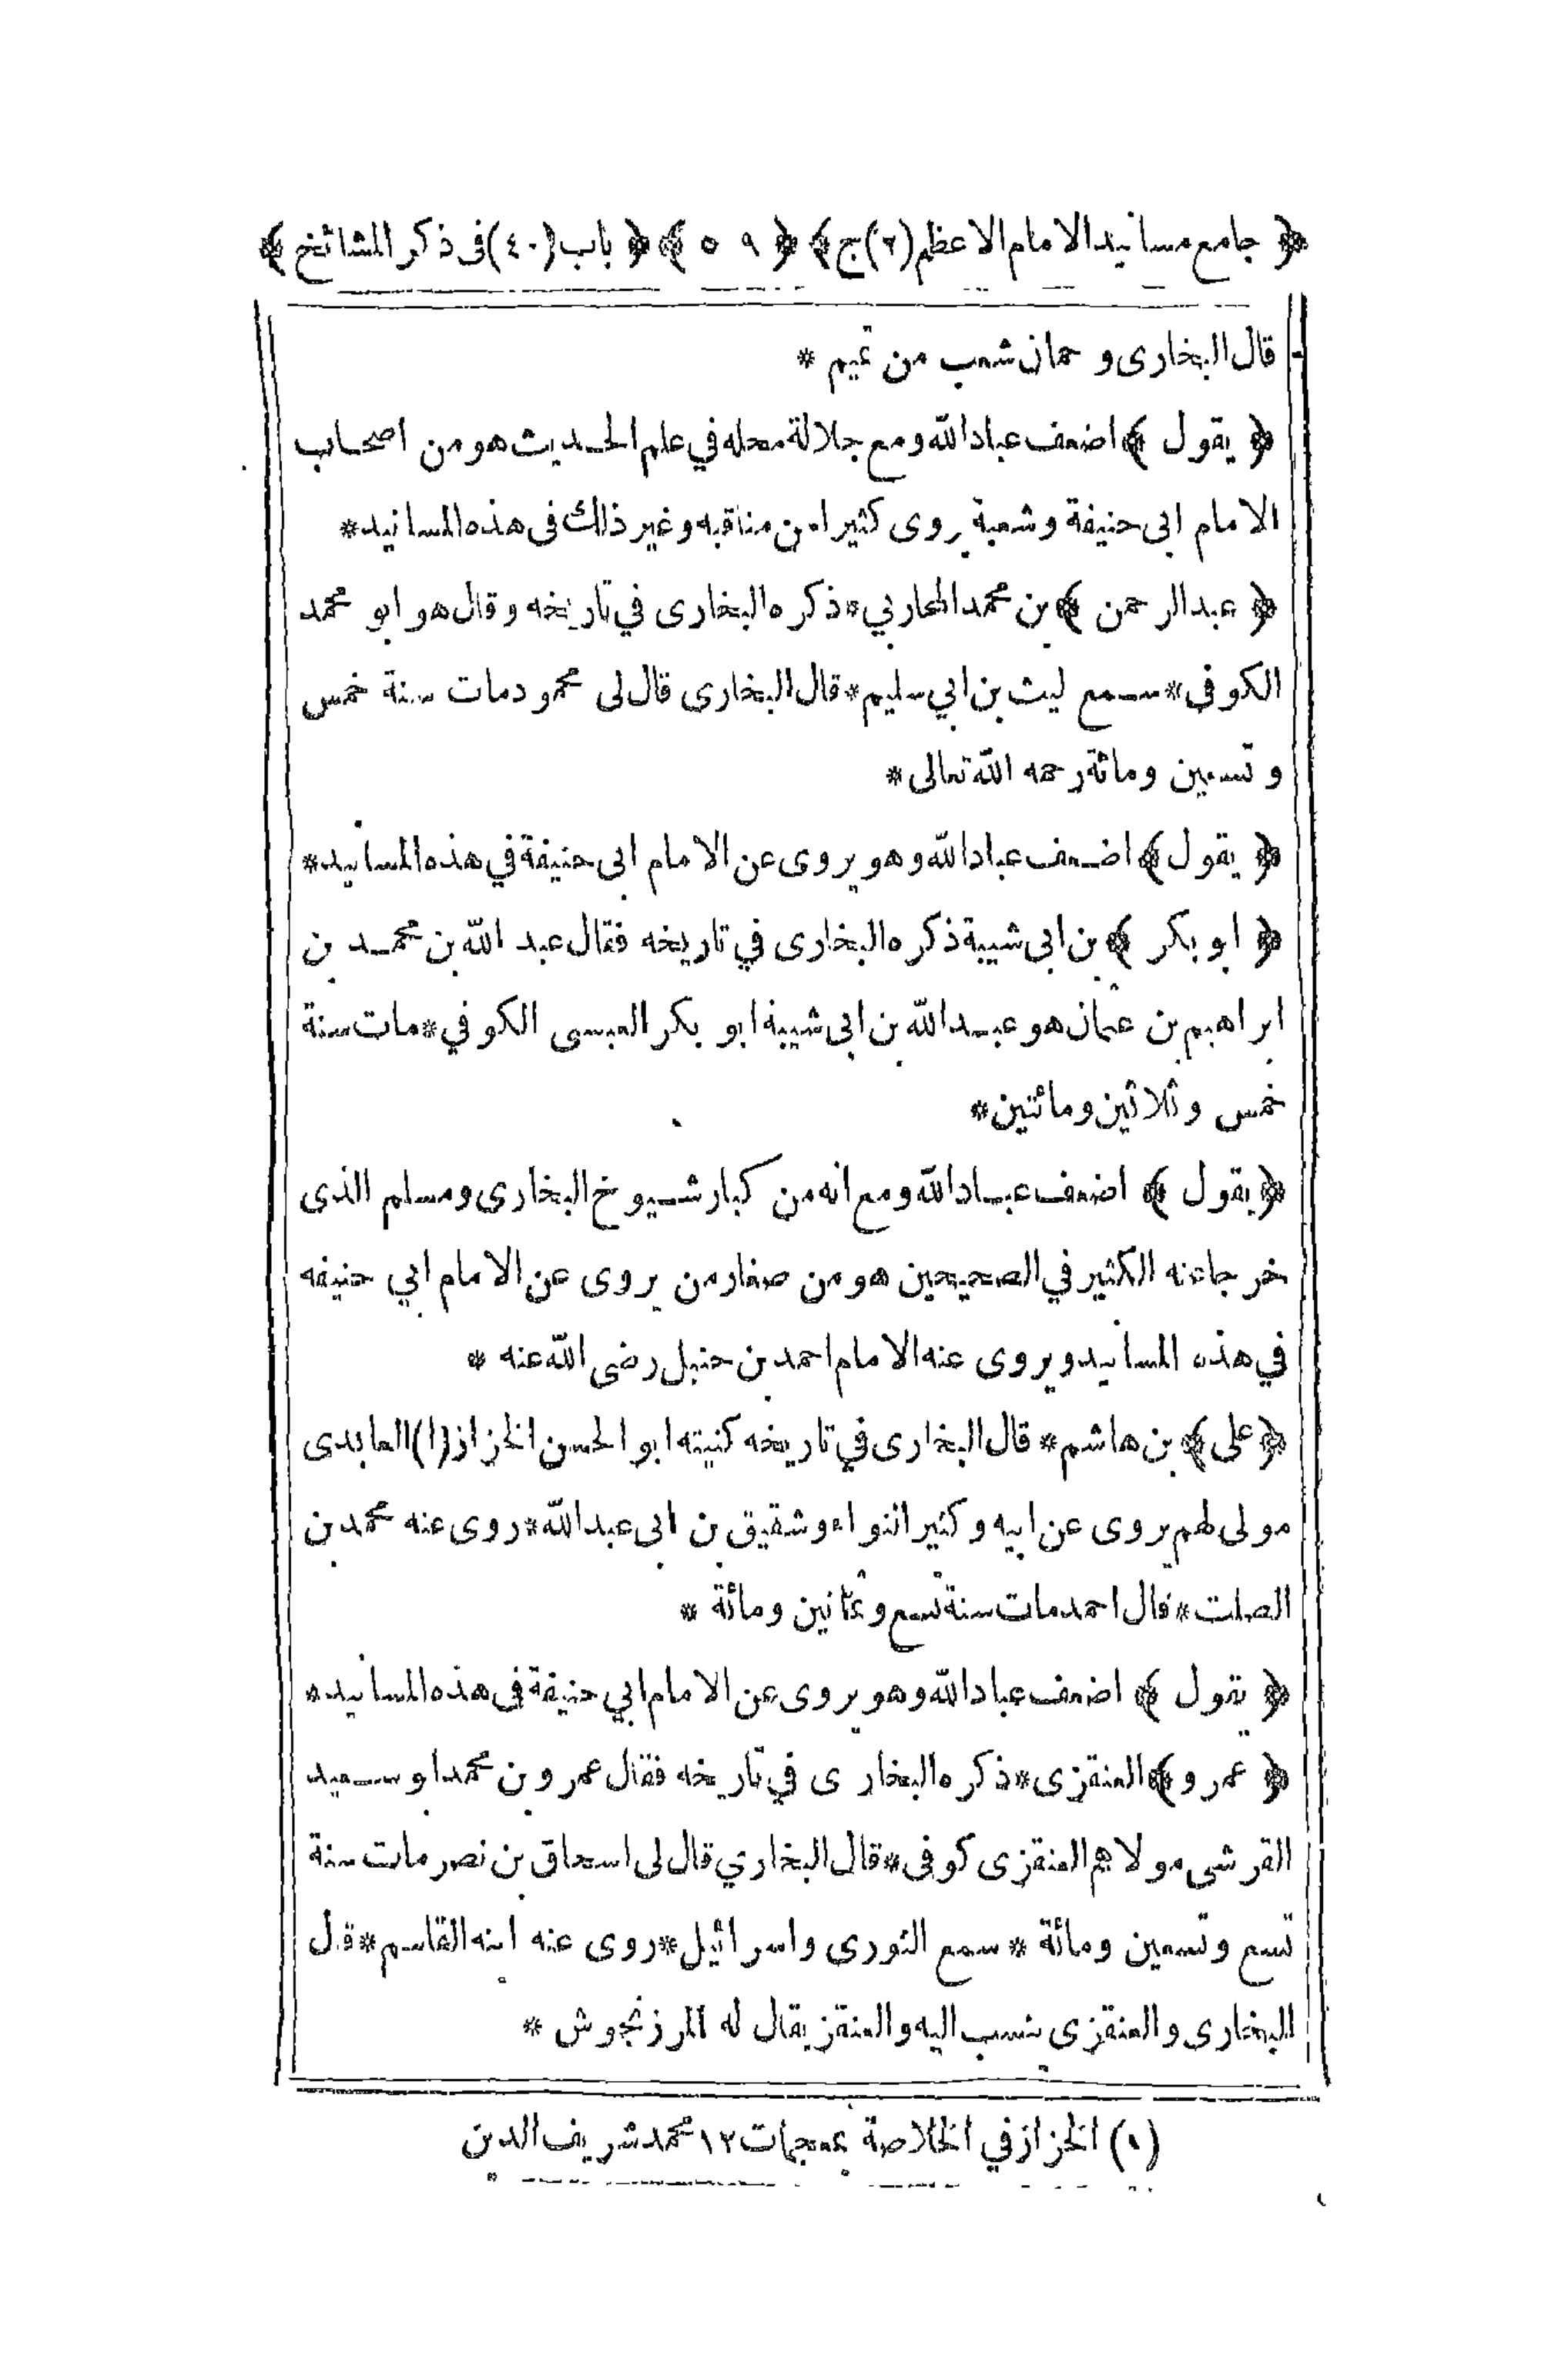 ﴿ جامع مسانيد الامام الاعظم (٢) ج ﴾ ﴿ ٥٠٩ ﴾ ﴿ باب (٤٠) فى ذكر المشائخ ﴾
قال البخارى و حمان شعب من تميم *
﴿ يقول ﴾ اضعف عباد الله ومع جلالة محله في علم الحديث هو من اصحاب
الامام ابى حنيفة وشعبة روى كثيرا من مناقبه وغير ذلك فى هذه المسانيد *
﴿ عبد الرحمن ﴾ بن محمد المحاربي * ذكره البخارى في تاريخه وقال هو ابو محمد
الكوفى * سمع ليث بن ابي سليم * قال البخارى قال لى محمود مات سنة خمس
و تسعين ومائة رحمه الله تعالى *
﴿ يقول ﴾ اضعف عباد الله وهو يروى عن الامام ابى حنيفة في هذه المسانيد *
﴿ ابو بكر ﴾ بن ابى شيبة ذكره البخارى في تاريخه فقال عبد الله بن محمد بن
ابراهيم بن عثمان هو عبد الله بن ابى شيبة ابو بكر العبسى الكوفي * مات سنة
خمس وثلاثين ومائتين *
﴿ يقول ﴾ اضعف عباد الله ومع انه من كبار شيوخ البخارى ومسلم الذى
خرجا عنه الكثير في الصحيحين هو من صغار من يروى عن الامام ابي حنيفه
في هذه المسانيد ويروى عنه الامام احمد بن حنبل رضى الله عنه *
﴿ على ﴾ بن هاشم * قال البخارى في تاريخه كنيته ابو الحسن الخزاز (١) العابدى
مولى لهم يروى عن ابيه وكثير النواء وشقيق بن ابى عبد الله * روى عنه محمد بن
الصلت * قال احمد مات سنة تسع وثمانين ومائة *
﴿ يقول ﴾ اضعف عباد الله وهو يروى عن الامام ابي حنيفة فى هذه المسانيد *
﴿ عمرو ﴾ العنقزى * ذكره البخارى في تاريخه فقال عمرو بن محمد ابو سعيد
القرشى مولاهم العنقزى كوفى * قال البخاري قال لى اسحاق بن نصر مات سنة
تسع وتسعين ومائة * سمع الثورى واسرائيل * روى عنه ابنه القاسم * قال
البخارى والعنقزى ينسب اليه والعنقز يقال له المرزنجوش *
(١) الخزاز في الخلاصة بمعجمات ١٢ محمد شريف الدين